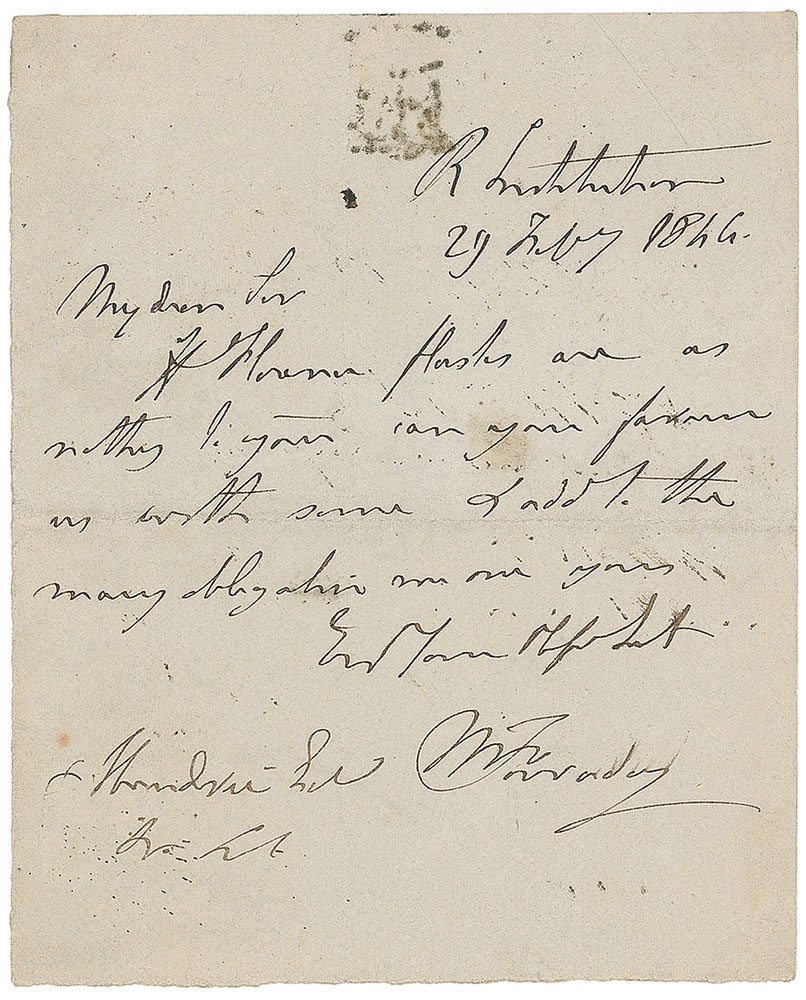 R Institution
29 Feby 1844.
My dear Sir
If Florence flasks are as
nothing to you can you favour
us with some & add to the
many obligations we owe you

M Faraday
Hendrie Esq
&c &c